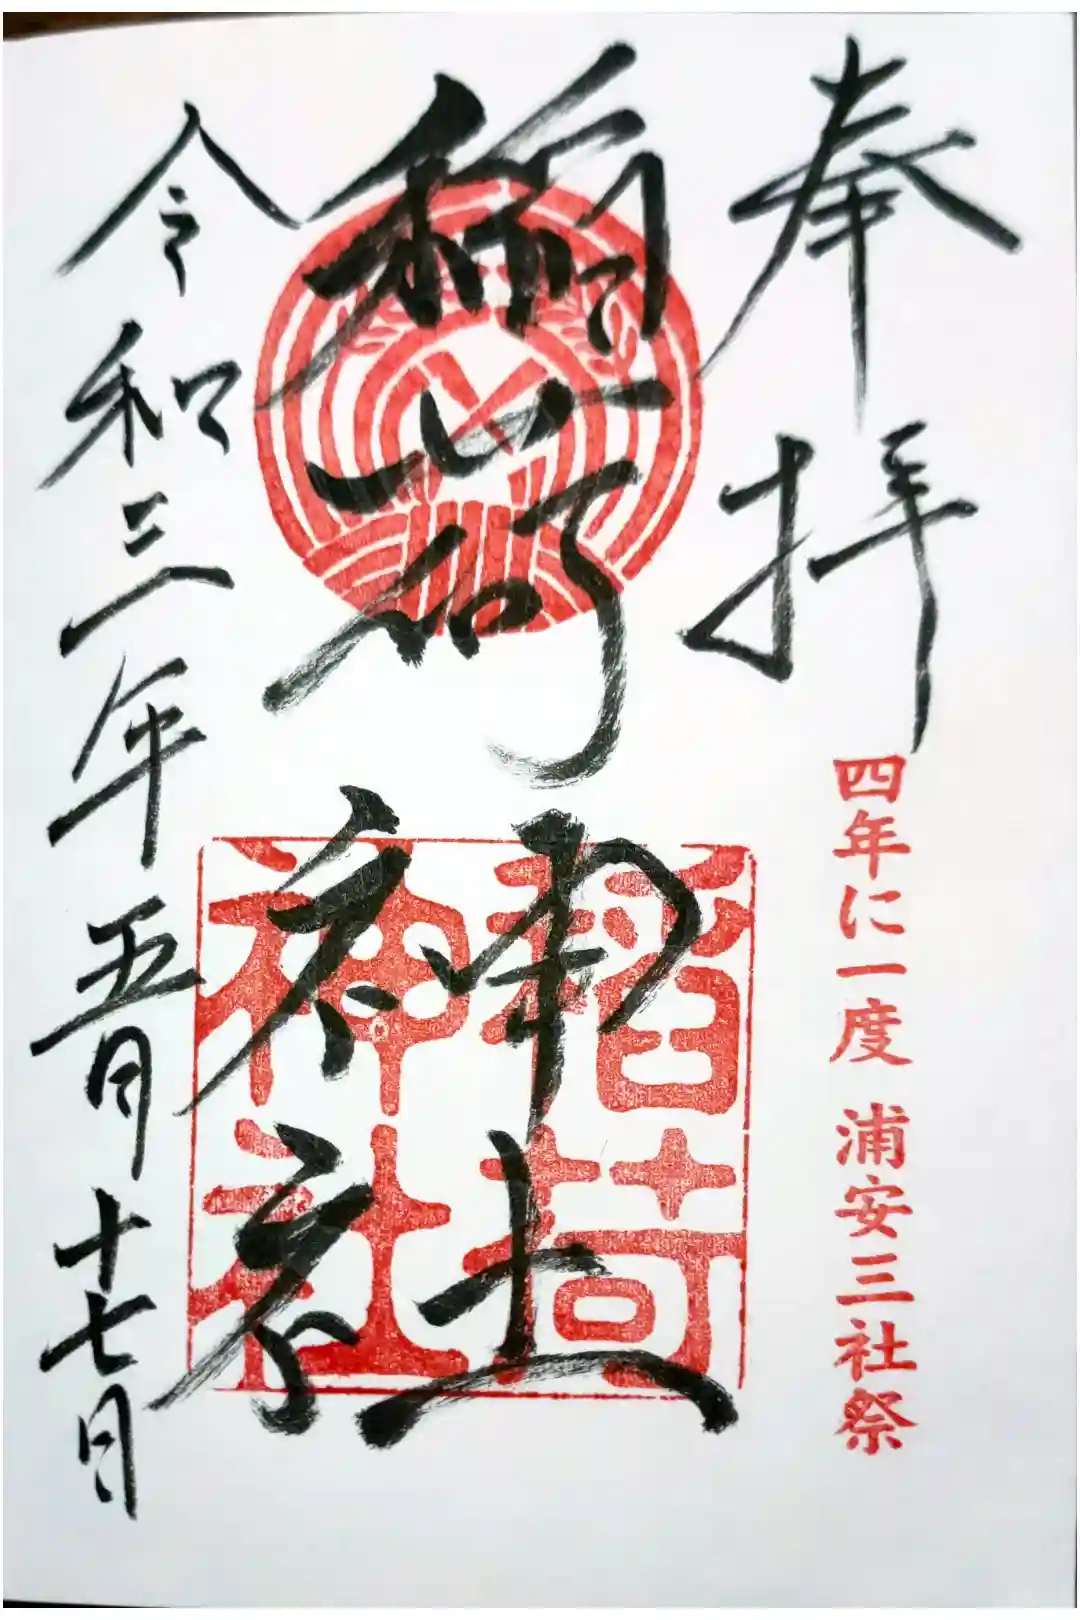 奉拝
四年に一度 浦安三社祭
稲荷神社
稲荷神社
令和三年五月十七日